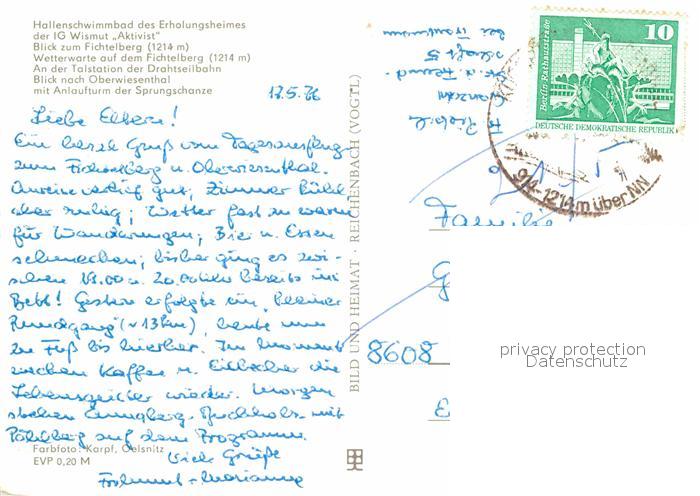 Hallenschwimmbad des Erholungsheimes
der IG Wismut „Aktivist“
Blick zum Fichtelberg (1214 m)
Wetterwarte auf dem Fichtelberg (1214 m)
An der Talstation der Drahtseilbahn
Blick nach Oberwiesenthal
mit Anlaufturm der Sprungschanze
17.5.76
Liebe Eltern!
Ein herzl. Gruß vom Tagesausflug
zum Fichtelberg u. Oberwiesenthal.
Anreise verlief gut, Zimmer kühl
aber ruhig; Wetter fast zu warm
für Wanderungen; Bier u. Essen
schmecken; bisher ging es zwi-
schen 19.00 u. 20.00 Uhr bereits ins
Bett! Gestern erfolgte ein „kleiner
Rundgang“ (~13 km), heute nun
zu Fuß bis hierher. Im Moment
wecken Kaffee u. Eisbecher die
Lebensgeister wieder. Morgen
stehen Annaberg-Buchholz mit
Pöhlberg auf dem Programm.
Viele Grüße
Farbfoto: Karpf, Oelsnitz
EVP 0,20 M
BILD UND HEIMAT · REICHENBACH (VOGTL)
10
Berlin, Rathausstraße
DEUTSCHE DEMOKRATISCHE REPUBLIK
914-1214 m über NN
Familie
G
8608
E
privacy protection
Datenschutz